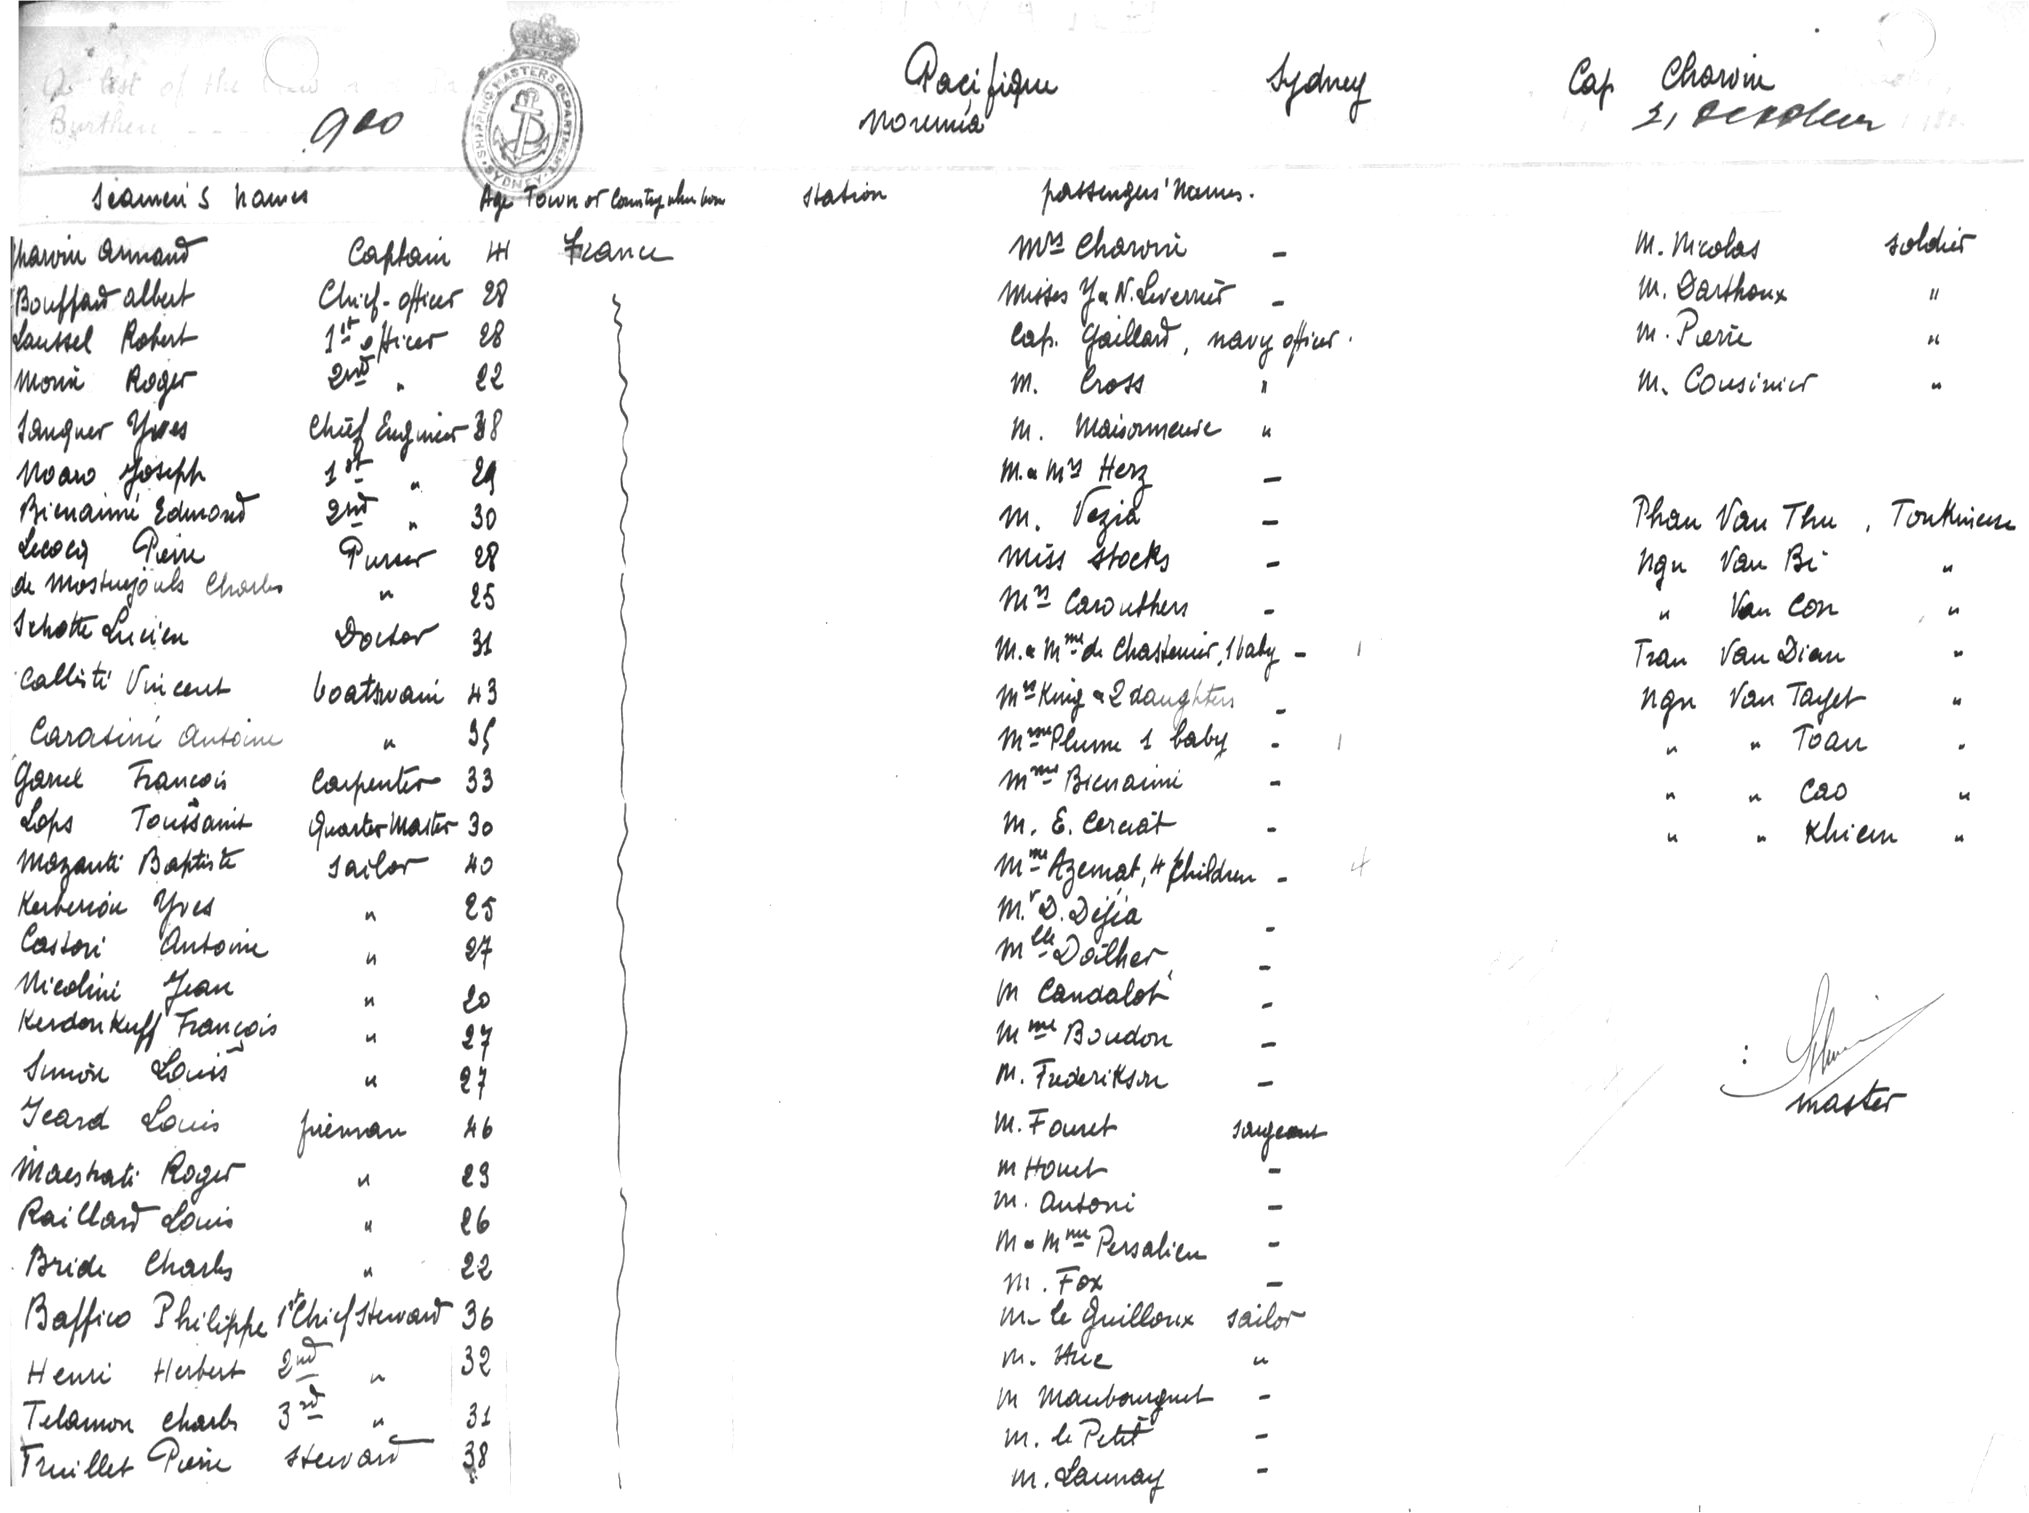 a list of the
Burthen
900
SHIPPING MASTERS DEPARTMENT
SYDNEY
Pacifique Sydney Cap Charvin
Noumea 21 October
Seamen's Names Age Town or Country where born Station passengers' Names.
Charvin Armand Captain 41 France
Bouffard Albert Chief-officer 28
Laussel Robert 1st officer 28
Morin Roger 2nd " 22
Sanquer Yves Chief Engineer 38
Noaro Joseph 1st " 29
Bienaimé Edmond 2nd " 30
Lecocq Pierre Purser 28
de Mostuejouls Charles " 25
Schotte Lucien Doctor 31
Callisti Vincent boatswain 43
Caratini Antoine " 35
Garel François Carpenter 33
Lops Toussaint Quarter Master 30
Mozanti Baptiste Sailor 40
Kerberion Yves " 25
Castori Antoine " 27
Nicolini Jean " 20
Kerdonkuff François " 27
Simon Louis " 27
Icard Louis fireman 46
Maestrati Roger " 23
Raillard Louis " 26
Bride Charles " 22
Baffico Philippe 1st Chief Steward 36
Henri Herbert 2nd " 32
Telamon Charles 3rd " 31
Truillet Pierre Steward 38
Mrs Charvin -
Misses Y & N. Leverrier -
Cap. Gaillard, navy officer.
M. Cross "
M. Maisonneuve "
M. & Mrs Herz -
M. Vezia -
Miss Stocks -
Mrs Carouthers -
M. & Mme de Chastenier, 1 baby - 1
Mrs King & 2 daughters -
Mme Plume 1 baby - 1
Mme Bienaimé -
M. E. Cerciat -
Mme Azemat, 4 Children - 4
Mr D. Dijia -
Mlle Doilher -
M Candalot -
Mme Boudon -
M. Frederikson -
M. Fouret sargeant
M Houet -
M. Antoni -
M & Mme Persalieu -
M. Fox -
M. le Guilloux sailor
M. Hue "
M Maubourguet -
M. le Petit -
M. Launay -
M. Nicolas soldier
M. Darthoux "
M. Pierre "
M. Cousinier "
Phan Van Thu, Tonkinese
Ngu Van Bi "
" Van Con "
Tran Van Dian "
Ngu Van Tayet "
" " Toan "
" " Cao "
" " Khiem "
master